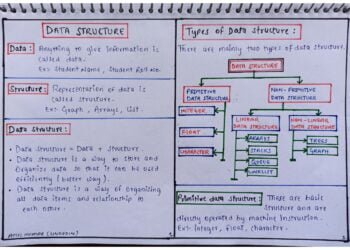 DATA STRUCTURE
Data :
Anything to give information is
called data.
Ex:- Student Name, Student Roll No.
Structure :
Representation of data is
called structure.
Ex:- Graph, Arrays, List.
Data Structure :
• Data structure = Data + structure.
• Data structure is a way to store and
Organize data so that it can be used
efficiently (better way).
• Data structure is a way of organizing
all data items and relationship to
each other.
Types of Data structure :
There are mainly two types of data structure.
DATA STRUCTURE
PRIMITIVE
DATA STRUCTURE
NON-PRIMITIVE
DATA STRUCTURE
INTEGER
FLOAT
CHARACTER
LINEAR
DATA STRUCTURE
ARRAYS
STACKS
QUEUE
LINKLIST
NON-LINEAR
DATA STRUCTURE
TREES
GRAPH
Primitive data structure :
These are basic
structure and are
directly operated by machine instruction.
Ex:- Integer, float, character.